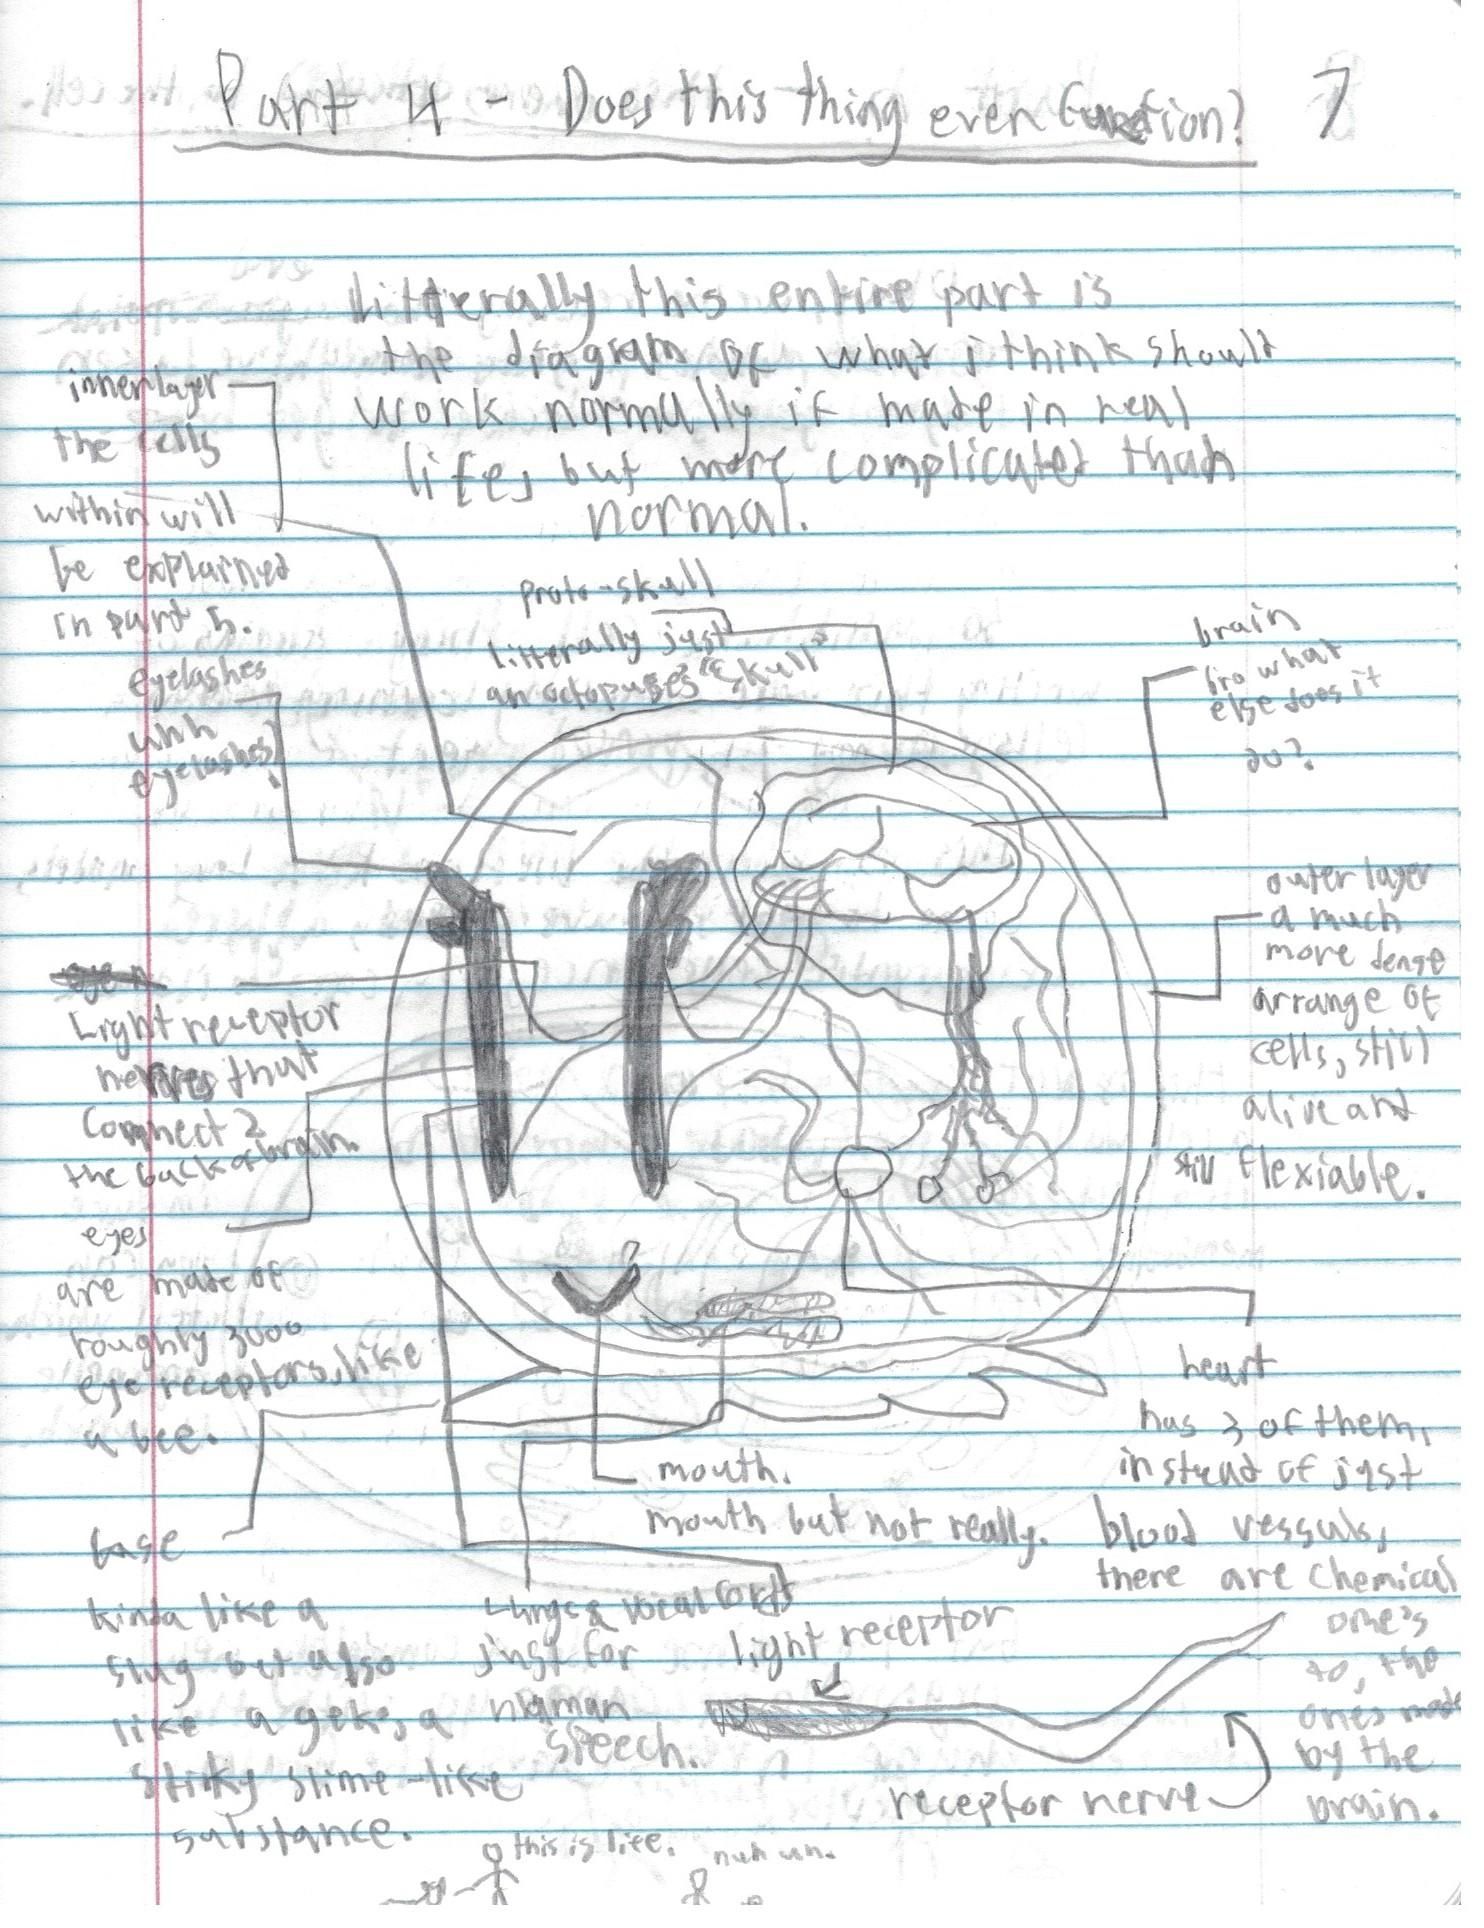 Part 4 - Does this thing even function? 7
Litterally this entire part is
the diagram of what i think should
work normally if made in real
life, but more complicated than
normal.
inner layer
the cells
within will
be explained
in part 5.
eyelashes
uhh
eyelashes!
proto-skull
litterally just
an octopuses "skull"
brain
bro what
else does it
do?
outer layer
a much
more dense
arrange of
cells, still
alive and
still flexiable.
Light receptor
nerves that
Connect 2
the back of brain.
eyes
are made of
roughly 3000
eye receptors, like
a bee.
base
kinda like a
slug but also
like a geko, a
stiky slime-like
substance.
mouth.
mouth but not really.
Lungs & vocal cords
just for
human
speech.
heart
has 3 of them,
instead of just
blood vessuls,
there are chemical
one's
to, the
ones made
by the
brain.
light receptor
receptor nerve
this is life. nuh uh.